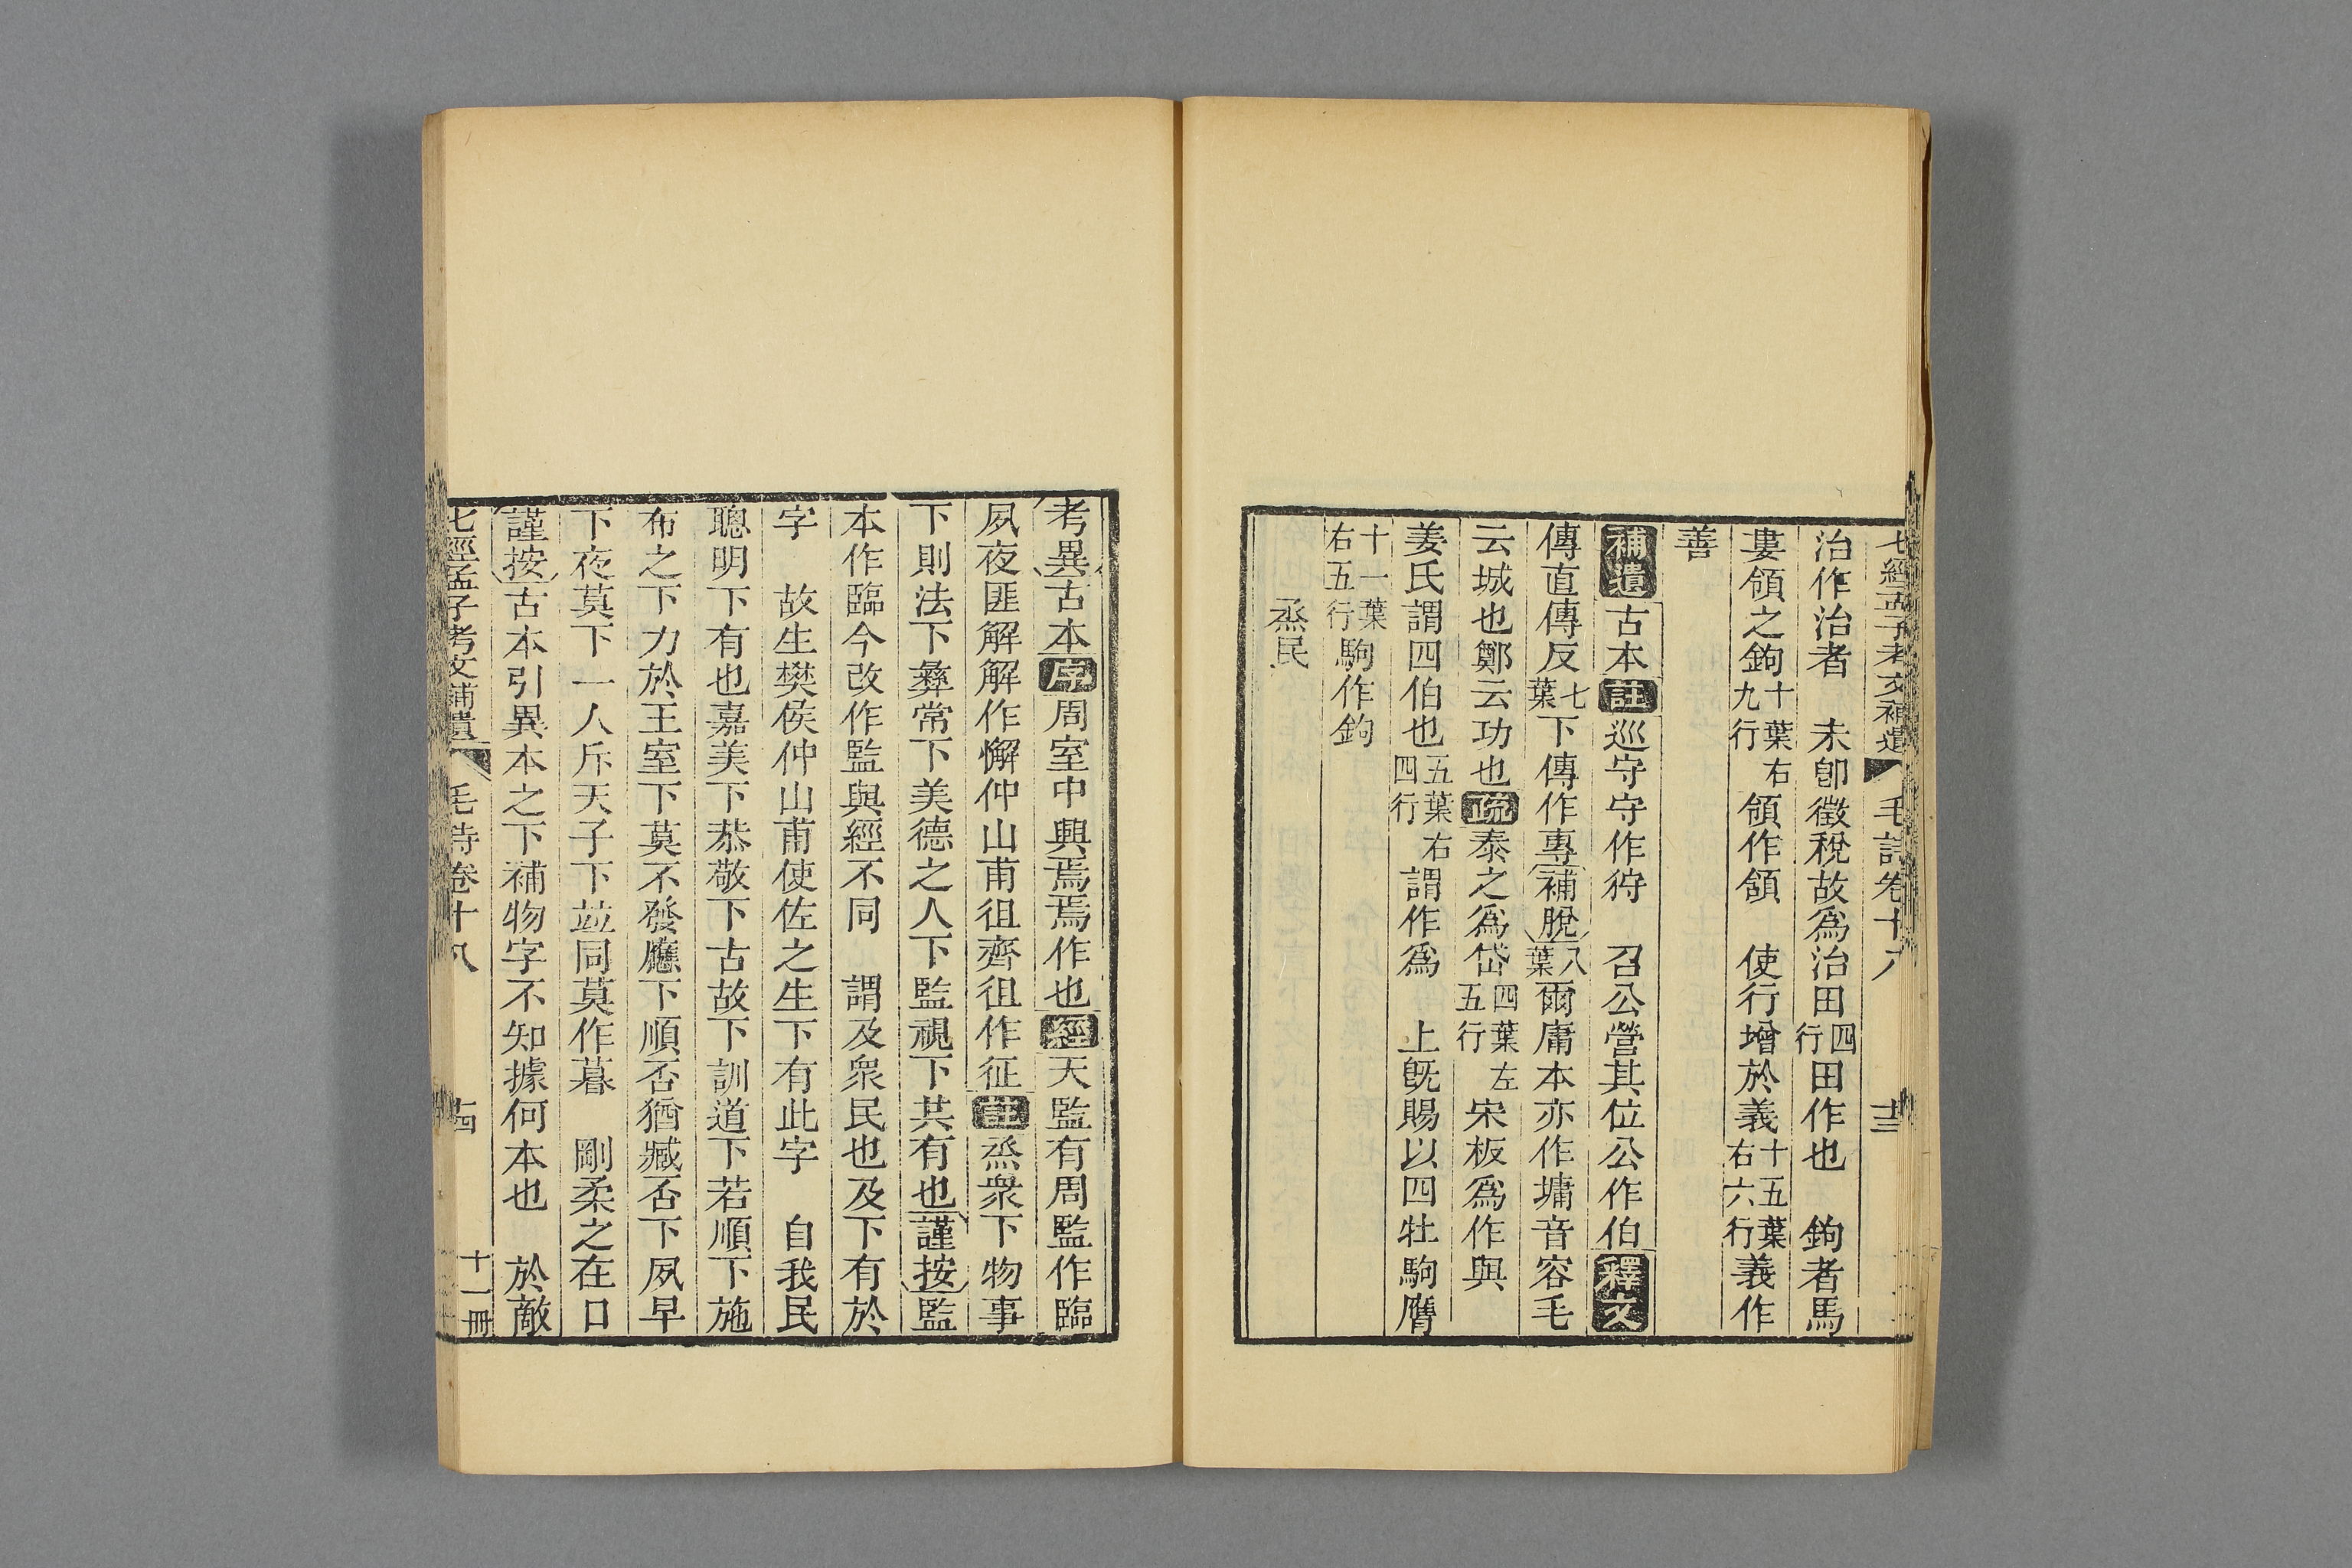 七經孟子考文補遺 毛詩卷十八 十三
治作治者　未卽徵稅故爲治田四行田作也　鉤者馬
婁頷之鉤十葉右九行頷作頜　使行增於義十五葉右六行義作
善
補遺古本註巡守守作狩　召公營其位公作伯釋文
傳直傳反七葉下傳作專補脫八葉爾庸本亦作墉音容毛
云城也鄭云功也疏泰之爲岱四葉左五行宋板爲作與
姜氏謂四伯也五葉右四行謂作爲　上旣賜以四牡駒膺
十一葉右五行駒作鉤
烝民
考異古本序周室中興焉焉作也經天監有周監作臨
夙夜匪解解作懈仲山甫徂齊徂作征註烝衆下物事
下則法下彝常下美德之人下監視下共有也謹按監
本作臨今改作監與經不同　謂及衆民也及下有於
字　故生樊侯仲山甫使佐之生下有此字　自我民
聰明下有也嘉美下恭敬下古故下訓道下若順下施
布之下力於王室下莫不發應下順否猶臧否下夙早
下夜莫下一人斥天子下竝同莫作暮　剛柔之在口
謹按古本引異本之下補物字不知據何本也　於敵
七經孟子考文補遺 毛詩卷十八 十四 十一冊